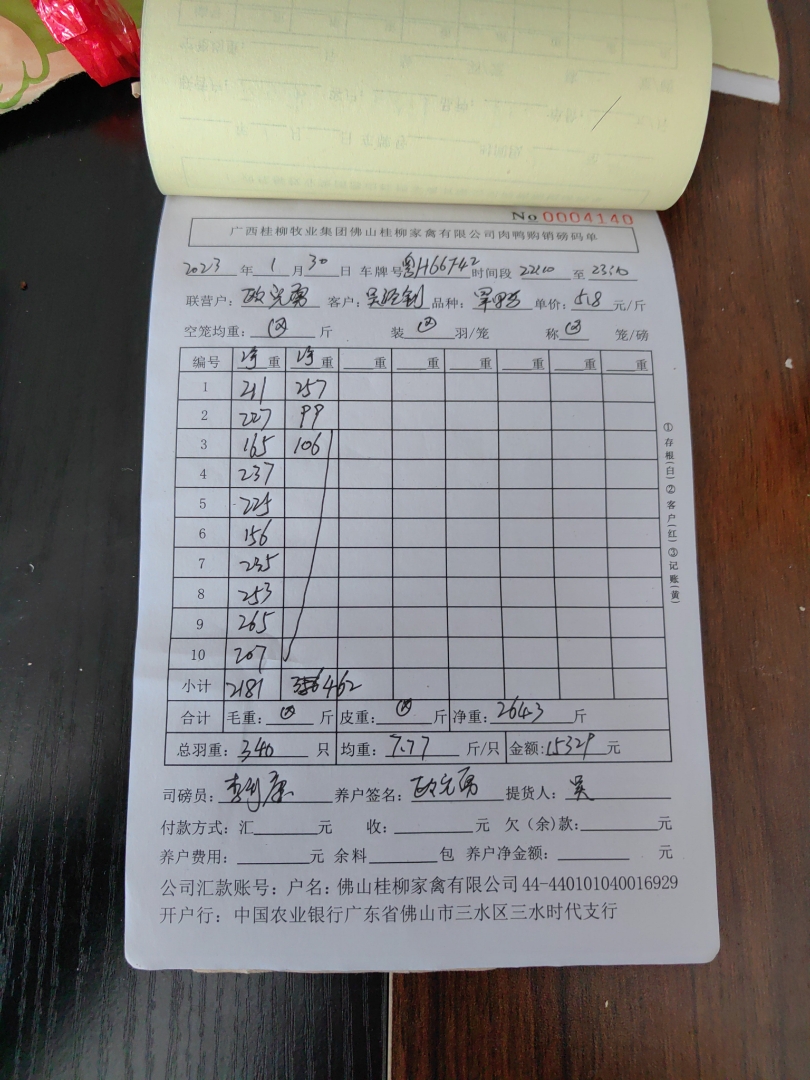 No 0004140
广西桂柳牧业集团佛山桂柳家禽有限公司肉鸭购销磅码单
2023 年 1 月 30 日 车牌号 粤H66T42 时间段 22:10 至 23:10
联营户: 欧光勇 客户: 品种: 单价: 5.8 元/斤
空笼均重: 斤 装 羽/笼 称 笼/磅
编号 净重 净重 重 重 重 重 重 重
1 211 257
2 227 99
3 165 106
4 237
5 225
6 156
7 235
8 253
9 265
10 207
小计 2181 462
合计 毛重: 斤 皮重: 斤 净重: 2643 斤
总羽重: 340 只 均重: 7.77 斤/只 金额: 15329 元
司磅员: 养户签名: 欧光勇 提货人: 吴
付款方式: 汇 元 收: 元 欠(余)款: 元
养户费用: 元 余料 包 养户净金额: 元
公司汇款账号: 户名: 佛山桂柳家禽有限公司 44-440101040016929
开户行: 中国农业银行广东省佛山市三水区三水时代支行
①存根(白)②客户(红)③记账(黄)